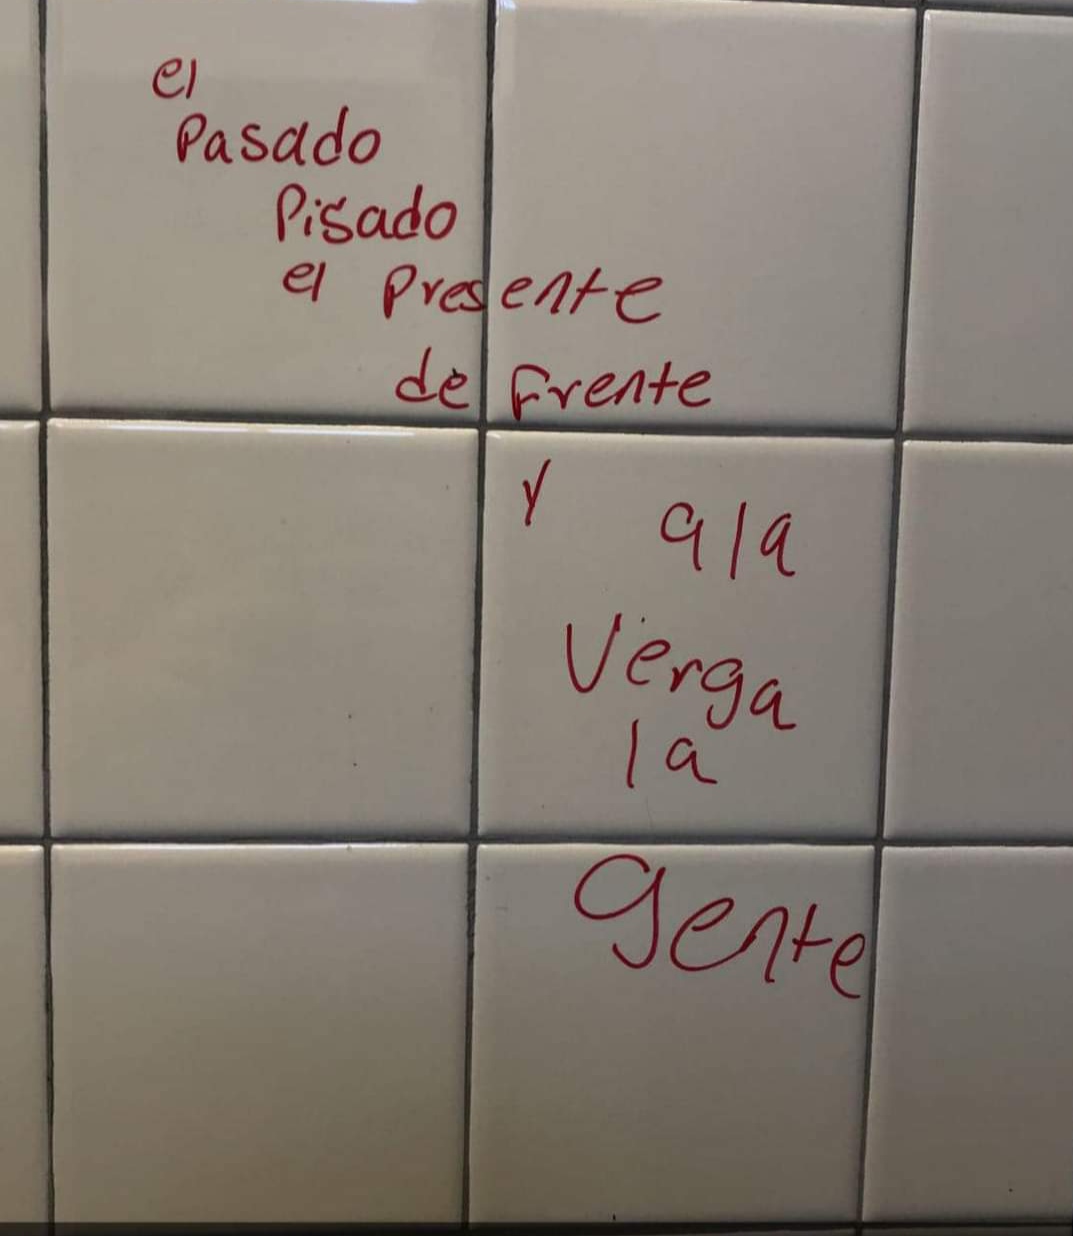 el
Pasado
Pisado
el Presente
de Frente
y a la
Verga
la
gente